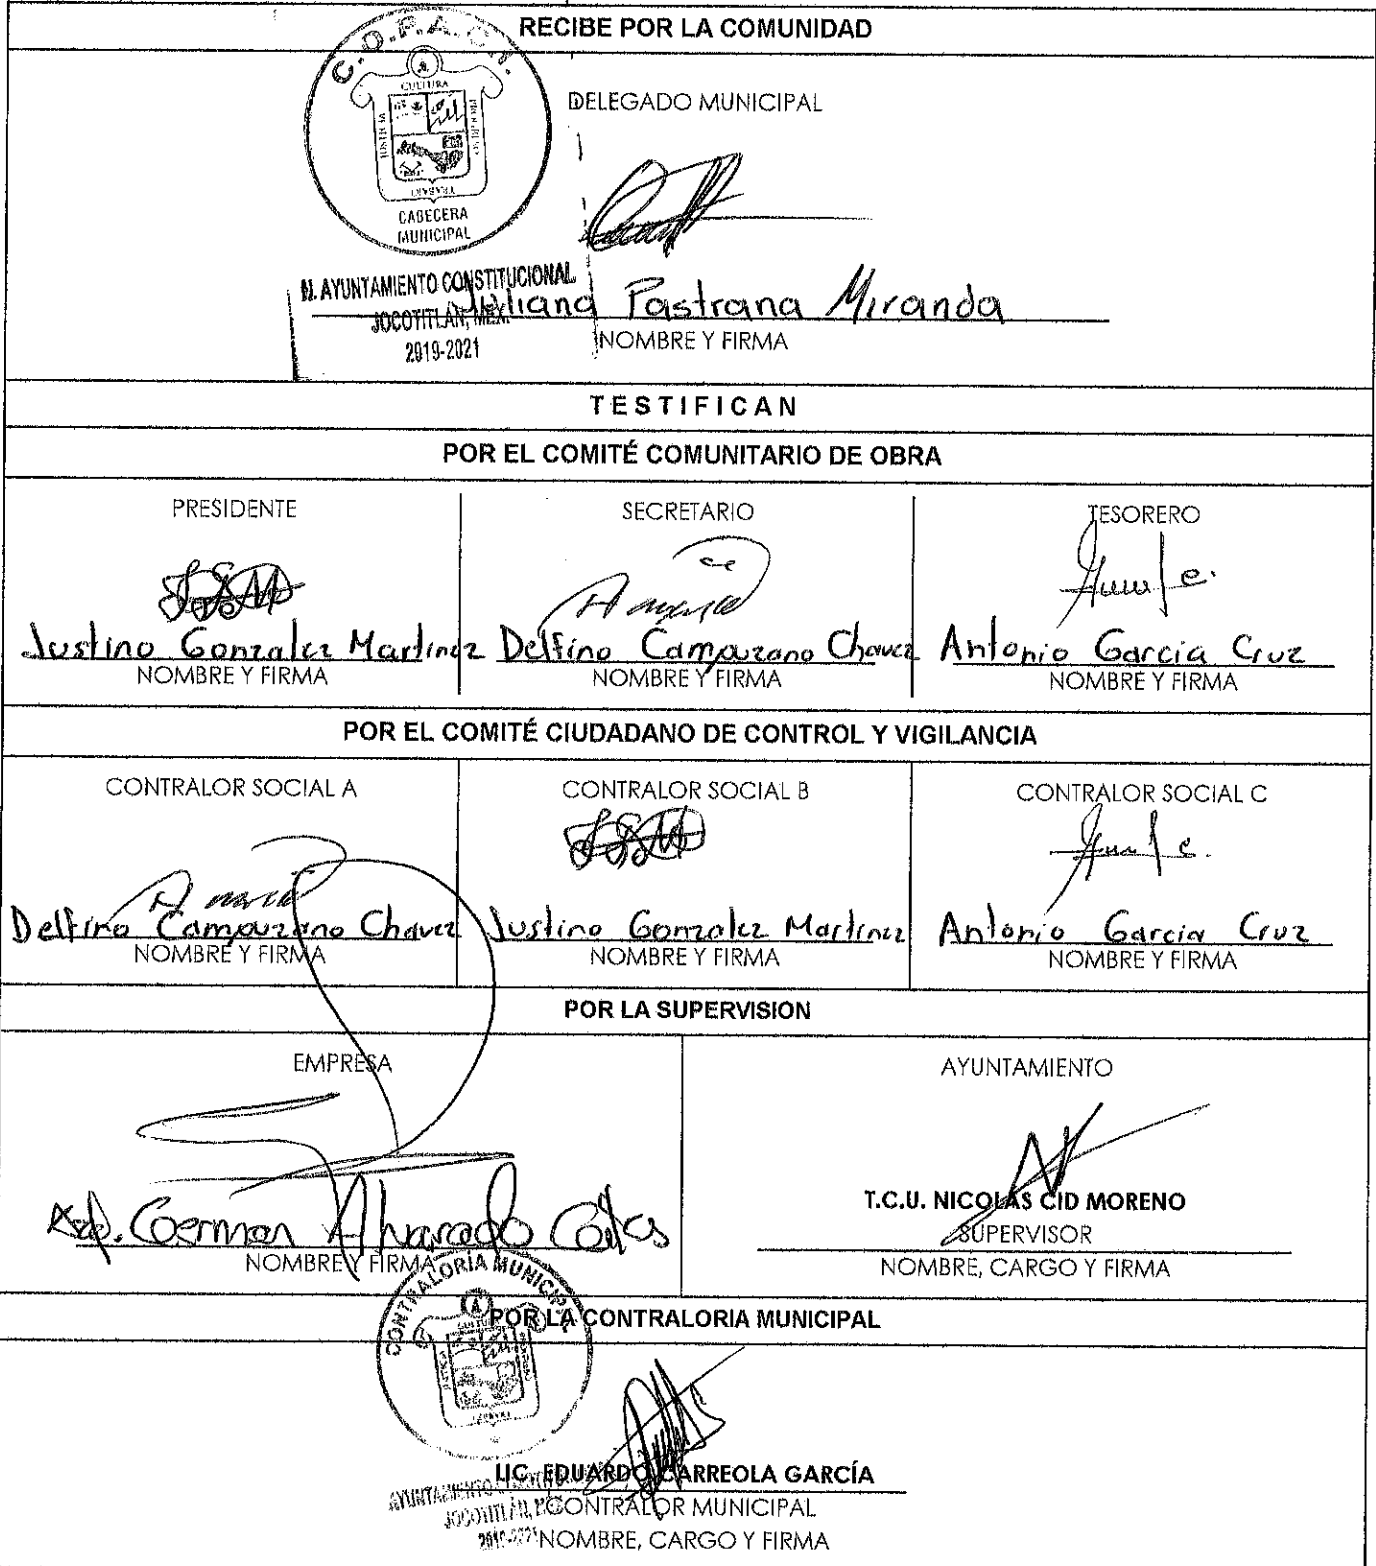 RECIBE POR LA COMUNIDAD
C.O.P.A.C.I.
CULTURA
CABECERA
MUNICIPAL
DELEGADO MUNICIPAL
H. AYUNTAMIENTO CONSTITUCIONAL
JOCOTITLÁN, MEX.
2019-2021
Juliana Pastrana Miranda
NOMBRE Y FIRMA
TESTIFICAN
POR EL COMITÉ COMUNITARIO DE OBRA
PRESIDENTE
Justino Gonzalez Martinez
NOMBRE Y FIRMA
SECRETARIO
Delfino Campuzano Chavez
NOMBRE Y FIRMA
TESORERO
Antonio Garcia Cruz
NOMBRE Y FIRMA
POR EL COMITÉ CIUDADANO DE CONTROL Y VIGILANCIA
CONTRALOR SOCIAL A
Delfino Campuzano Chavez
NOMBRE Y FIRMA
CONTRALOR SOCIAL B
Justino Gonzalez Martinez
NOMBRE Y FIRMA
CONTRALOR SOCIAL C
Antonio Garcia Cruz
NOMBRE Y FIRMA
POR LA SUPERVISION
EMPRESA
German Alvarado
NOMBRE Y FIRMA
AYUNTAMIENTO
T.C.U. NICOLAS CID MORENO
SUPERVISOR
NOMBRE, CARGO Y FIRMA
CONTRALORÍA MUNICIPAL
POR LA CONTRALORIA MUNICIPAL
LIC. EDUARDO CARREOLA GARCÍA
AYUNTAMIENTO
CONTRALOR MUNICIPAL
JOCOTITLÁN,
NOMBRE, CARGO Y FIRMA